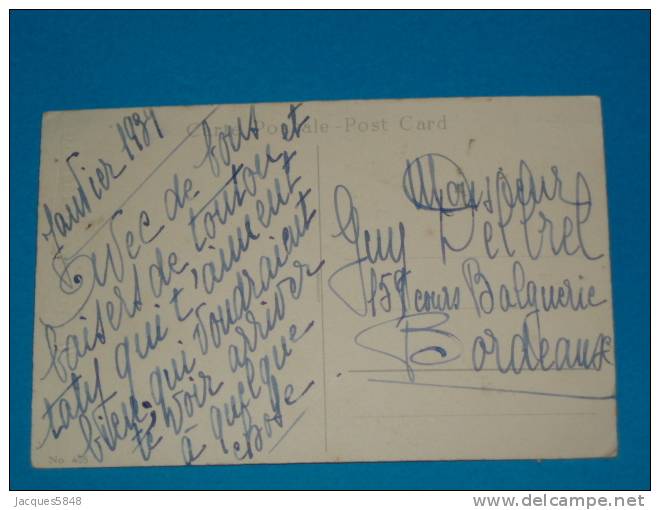 Carte Postale - Post Card
Janvier 1931
Avec de bons
baisers de tonton et
taty qui t'aiment
bien. qui voudraient
te voir arriver
à quelque
chose
Monsieur
Guy Deltrel
159 cours Balguerie
Bordeaux
No 435
Jacques5848
delcampe.net